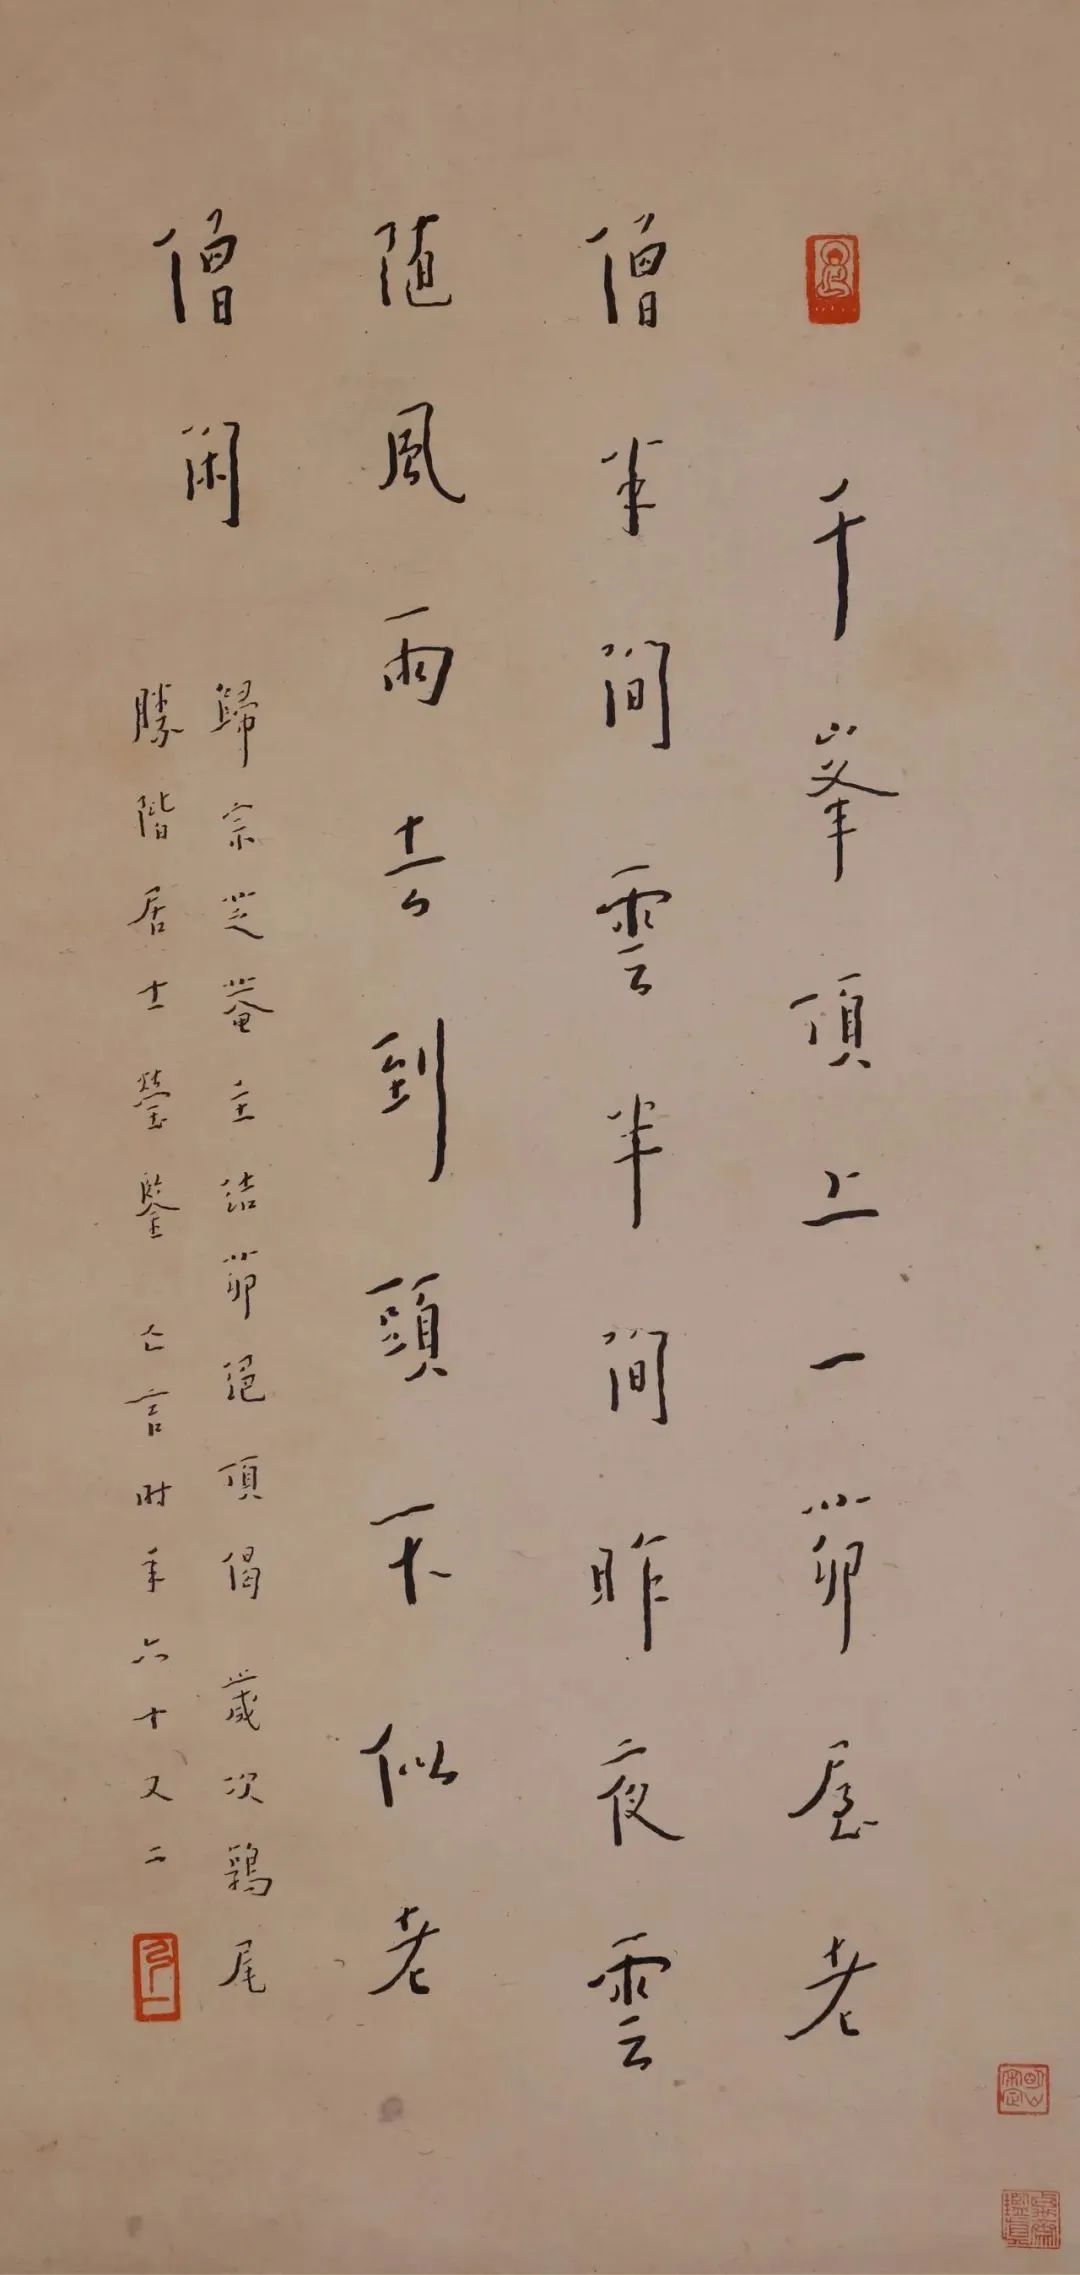 千峯頂上一茆屋老
僧半間雲半間昨夜雲
随風雨去到頭不似老
僧閑
歸宗芝菴主結茆絕頂偈 歲次鶉尾
勝階居士瑩鑒 亡言时年六十又二